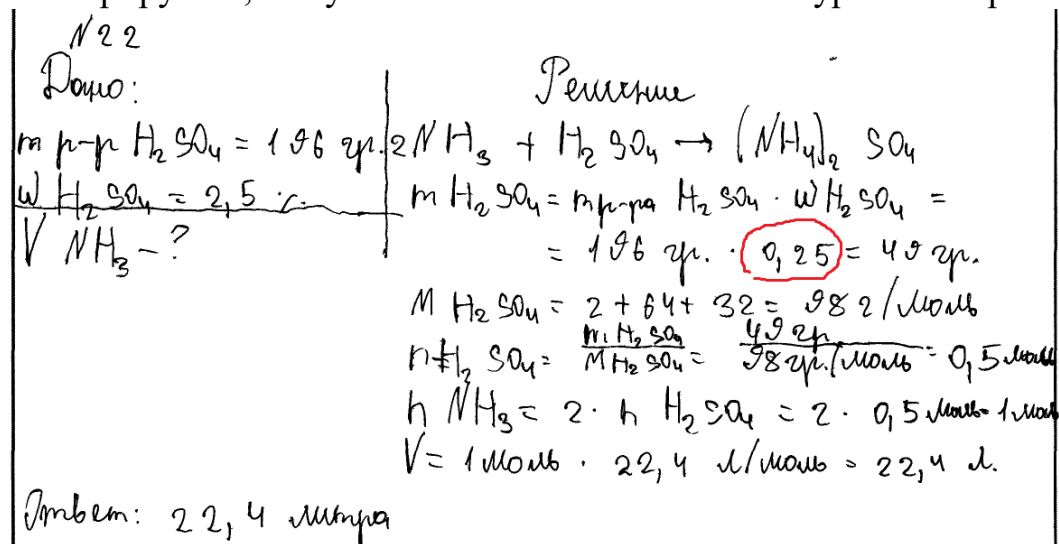 N22
Дано:
m р-р H₂SO₄ = 196 гр.
w H₂SO₄ = 2,5 %
V NH₃ - ?
Решение
2NH₃ + H₂SO₄ → (NH₄)₂ SO₄
m H₂SO₄ = m р-ра H₂SO₄ · w H₂SO₄ =
= 196 гр. · 0,25 = 49 гр.
M H₂SO₄ = 2 + 64 + 32 = 98 г/моль
n H₂ SO₄ = m H₂SO₄ / M H₂SO₄ = 49 гр / 98 гр./моль = 0,5 моль
n NH₃ = 2 · n H₂SO₄ = 2 · 0,5 моль = 1 моль
V = 1 моль · 22,4 л/моль = 22,4 л.
Ответ: 22,4 литра